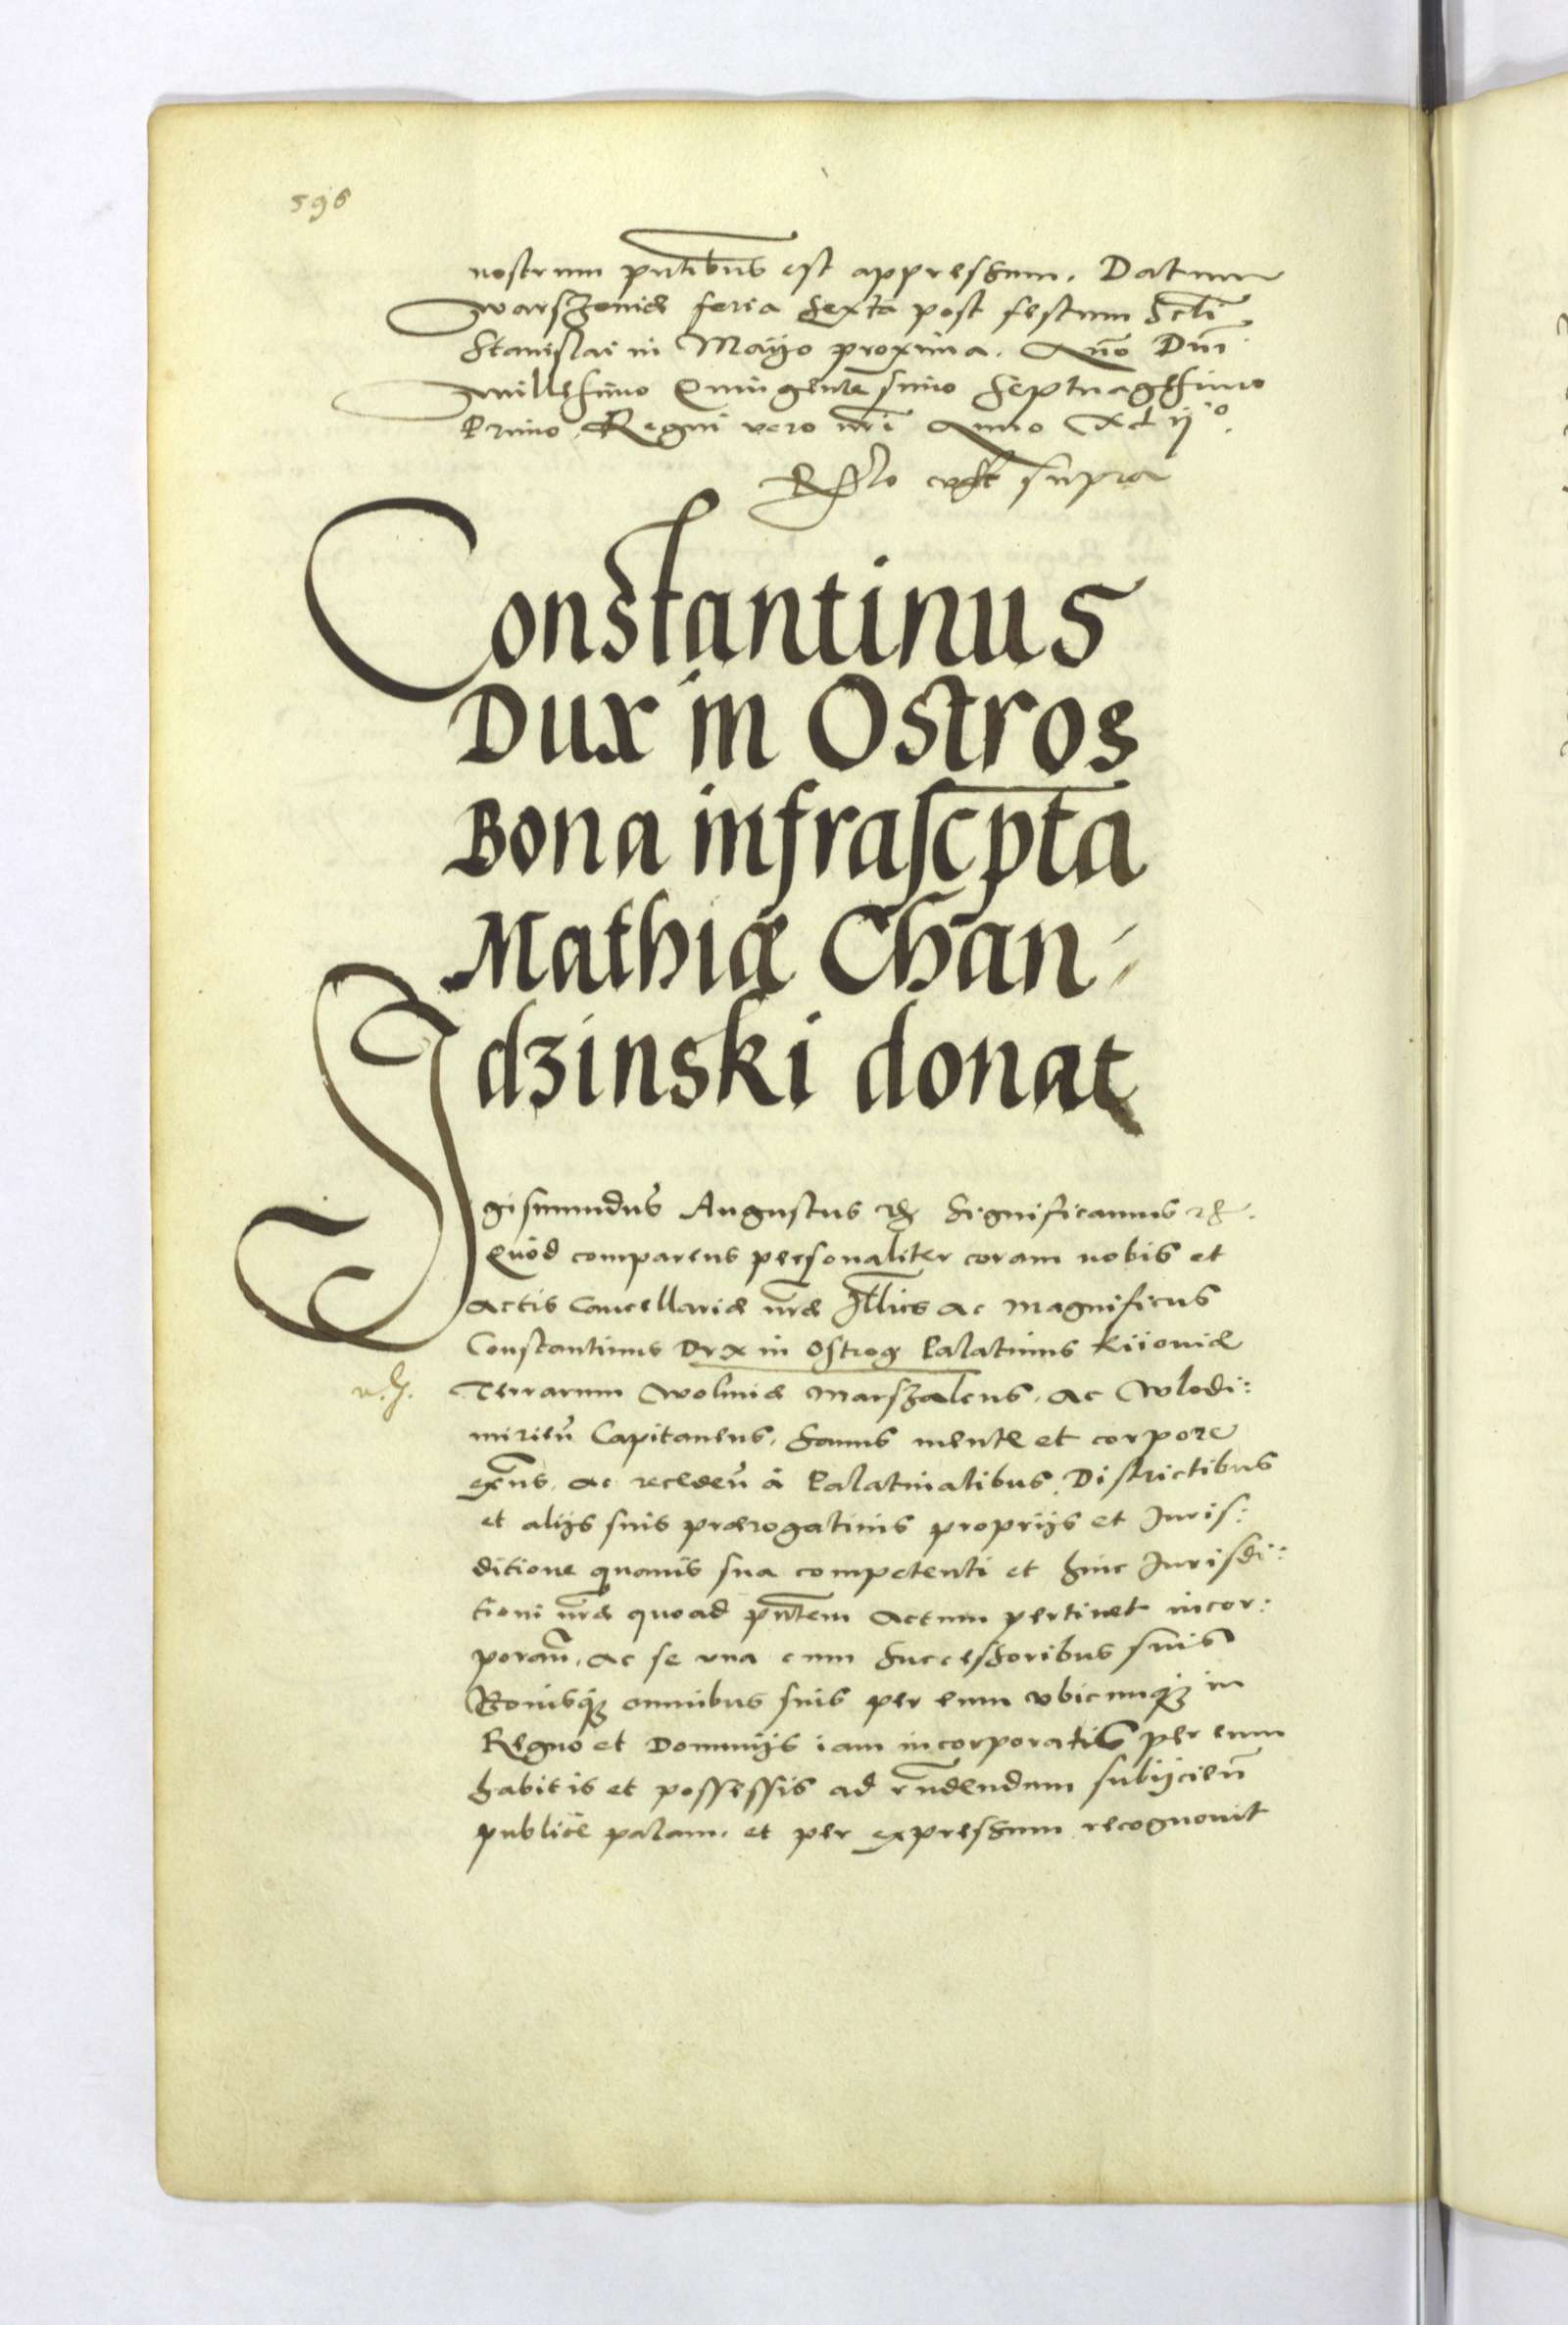 596
nostrum pñtibus est appressum. Datum
Warszoviæ feria sexta post festum Scti
Stanislai in Maijo proxima. Anno Dni
millesimo Quingentesimo Septuagesimo
Primo, Regni vero nri Anno
Rlo supra
Constantinus
Dux in Ostros
Bona infrascpta
Mathiæ Chan-
dzinski donat
Sigismundus Augustus &c. Significamus &c.
Quod comparens personaliter coram nobis et
Actis Cancellariæ nræ Illris ac Magnificus
Constantinus Dux in Ostrog Palatinus Kiioviæ
Terrarum Woliniæ Marszalcus, ac Wlodi:
mirien Capitaneus, sanus mente et corpore
exns, ac receden à Palatinatibus, Districtibus
et alijs suis prærogativis proprijs et Juris:
ditione quamvis sua competenti et huic Jurisdi:
tioni nræ quoad pñtem Actum pertinet incor:
poran, ac se una cum successoribus suis
Bonisq; omnibus suis per eum ubicunq; in
Regno et Dominijs iam incorporatis per eum
habitis et possessis ad rñdendum subijcien
publicè palam, et per expressum recognovit